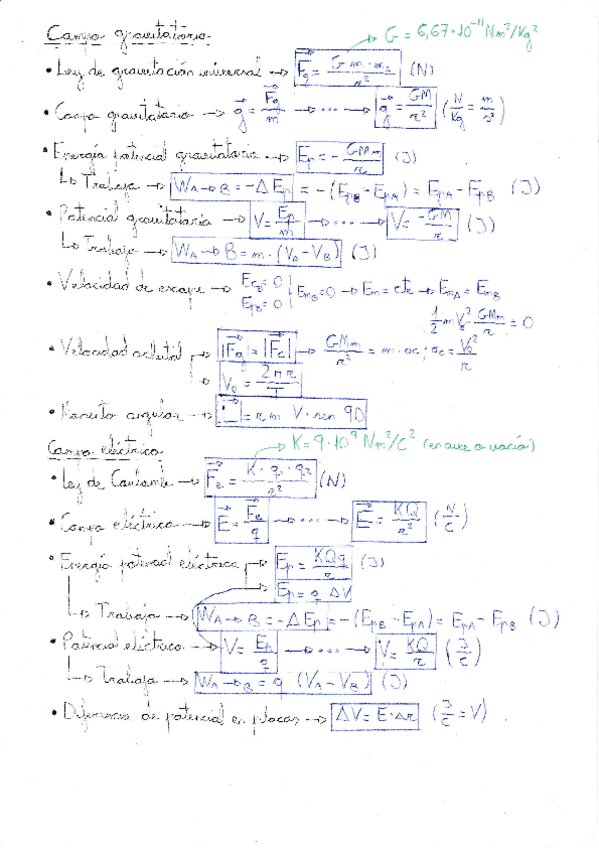 Campo gravitatorio G = 6,67·10⁻¹¹ Nm²/Kg²
• Ley de gravitación universal → Fg = G·m₁·m₂/r² (N)
• Campo gravitatorio → g = Fg/m → ... → g = GM/r² (N/Kg = m/s²)
• Energía potencial gravitatoria → Ep = - GMm/r (J)
↳ Trabajo → WA→B = -ΔEp = -(EpB - EpA) = EpA - EpB (J)
• Potencial gravitatorio → V = Ep/m → ... → V = -GM/r (J)
↳ Trabajo → WA→B = m·(VA - VB) (J)
• Velocidad de escape → EcB = 0 EpB = 0 } EmB = 0 → Em = cte → EmA = EmB
1/2 m V₀² - GMm/r = 0
• Velocidad orbital → |Fg| = |Fc| → GMm/r² = m·ac ; ac = V₀²/r
→ V₀ = 2πr/T
• Momento angular → |L| = r m · V · sen 90
Campo eléctrico → K = 9·10⁹ Nm²/C² (en aire o vacío)
• Ley de Coulomb → Fe = K·q₁·q₂/r² (N)
• Campo eléctrico → E = Fe/q → ... → E = KQ/r² (N/C)
• Energía potencial eléctrica → Ep = KQq/r (J)
Ep = q ΔV
↳ Trabajo → WA→B = -ΔEp = -(EpB - EpA) = EpA - EpB (J)
• Potencial eléctrico → V = Ep/q → ... → V = KQ/r (J/C)
↳ Trabajo → WA→B = q·(VA - VB) (J)
• Diferencia de potencial en placas → ΔV = E·Δr (J/C = V)